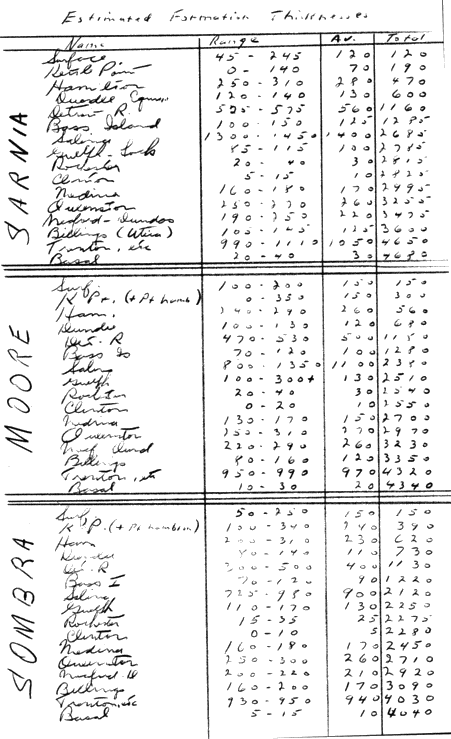 Estimated Formation Thicknesses
Name Range Av. Total
SARNIA
Surface 45 - 245 120 120
Kettle Point 0 - 140 70 190
Hamilton 250 - 310 280 470
Dundee 120 - 140 130 600
Detroit R. 525 - 575 560 1160
Bass Island 100 - 150 125 1285
Salina 1300 - 1450 1400 2685
Guelph - Lock 85 - 115 100 2785
Rochester 20 - 40 30 2815
Clinton 5 - 15 10 2825
Medina 160 - 180 170 2995
Queenston 250 - 270 260 3255
Meaford - Dundas 190 - 250 220 3475
Billings (Utica) 105 - 145 125 3600
Trenton, etc 990 - 1110 1050 4650
Basal 20 - 40 30 4680
MOORE
Surf. 100 - 200 150 150
K Pt. (+ Pt Lamb) 0 - 350 150 300
Ham. 240 - 290 260 560
Dundee 100 - 130 120 680
Det. R 470 - 530 500 1180
Bass Is 70 - 120 100 1280
Salina 800 - 1350 1100 2380
Guelph 100 - 300+ 130 2510
Rochter 20 - 40 30 2540
Clinton 0 - 20 10 2550
Medina 130 - 170 150 2700
Queenston 250 - 310 270 2970
Meaf Dund 220 - 290 260 3230
Billings 80 - 160 120 3350
Trenton, etc 950 - 990 970 4320
Basal 10 - 30 20 4340
SOMBRA
Surf. 50 - 250 150 150
K P. (+ Pt Lambton) 100 - 340 240 390
Ham 200 - 310 230 620
Dundee 80 - 140 110 730
Det. R 300 - 500 400 1130
Bass I 70 - 120 90 1220
Salina 725 - 980 900 2120
Guelph 110 - 170 130 2250
Rochester 15 - 35 25 2275
Clinton 0 - 10 5 2280
Medina 160 - 180 170 2450
Queenston 250 - 300 260 2710
Meaford D 200 - 220 210 2920
Billings 160 - 200 170 3090
Trenton, etc 930 - 950 940 4030
Basal 5 - 15 10 4040